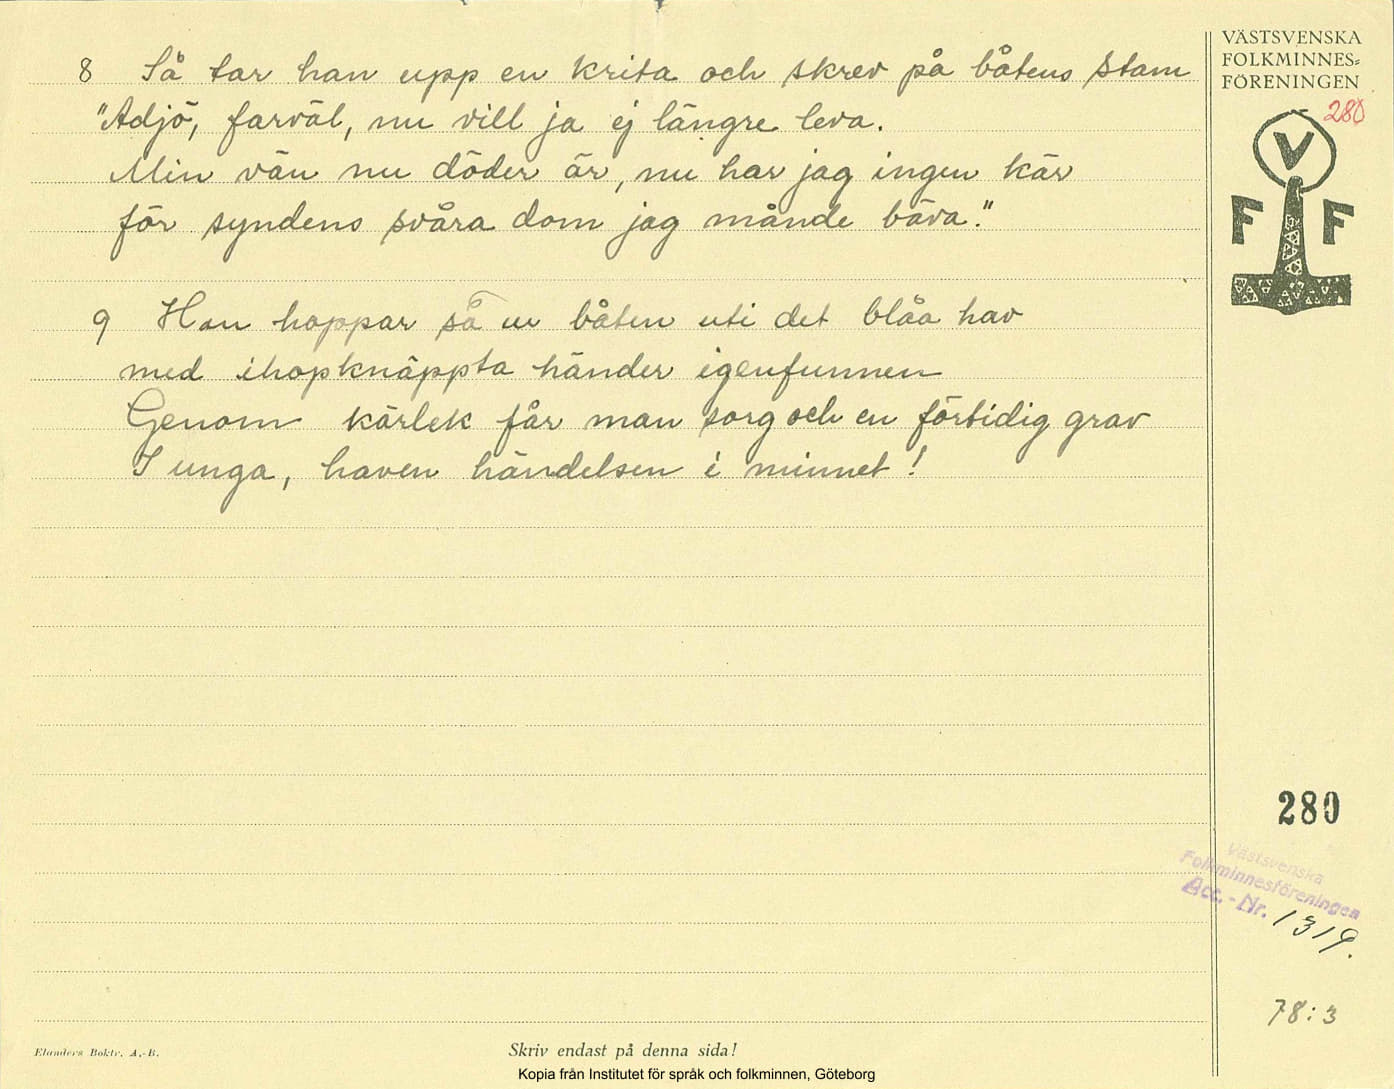 VÄSTSVENSKA
FOLKMINNES=
FÖRENINGEN
280
V
F F
8 Så tar han upp en krita och skrev på båtens stam
"Adjö, farväl, nu vill ja ej längre leva.
Min vän nu döder är, nu har jag ingen kär
för syndens svåra dom jag månde bäva."
9 Han hoppar så ur båten uti det blåa hav
med ihopknäppta händer igenfunnen
Genom kärlek får man sorg och en förtidig grav
I unga, haven händelsen i minnet!
280
Västsvenska
Folkminnesföreningen
Acc.-Nr. 1319.
78:3
Elanders Boktr. A.-B.
Skriv endast på denna sida!
Kopia från Institutet för språk och folkminnen, Göteborg